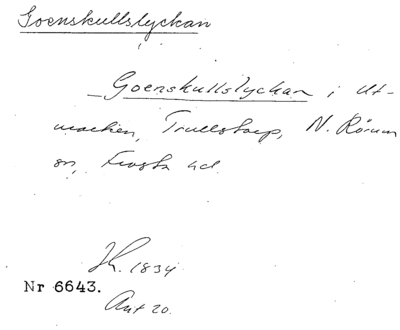 Goenskullslyckan
Goenskullslyckan i Ut-
marken, Trullstorp, N. Rörum
sn, Frosta hd.
Jk. 1834
Nr 6643.
Akt 20.